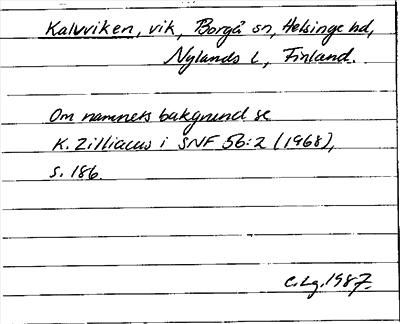 Kalvviken, vik, Borgå sn, Helsinge hd,
Nylands l, Finland.
Om namnets bakgrund se
K. Zilliacus i SNF 56:2 (1968),
s. 186.
C.Lg. 1987.